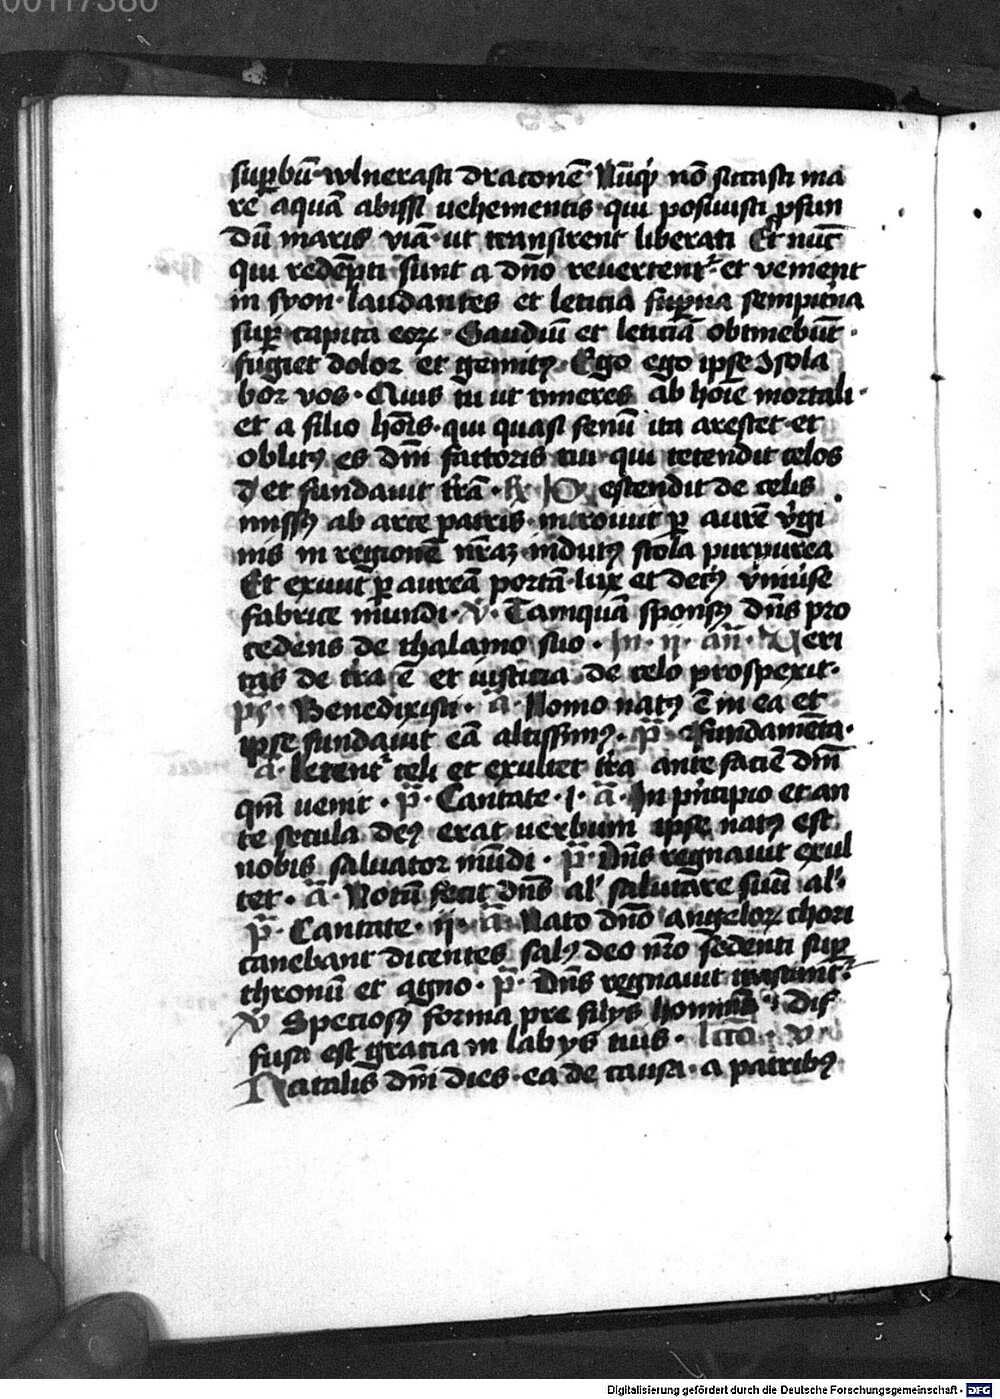 00117380
sup̲bū · wlnerasti draconē Nūq̇ nō siccasti ma
re aquā abissi uehementis · qui posuisti ꝓfun
dū maris viā · ut transirent liberati Et nūc
qui redēpti sunt a dn̄o reuertent᷑ · et venient
in syon · laudantes et leticia sup̲na sempit̲na
sup̲ capita eoꝝ · Gaudiū et leticiā obtinebūt ·
fugiet dolor et gemitꝰ · Ego ego ipse Ɔsola
bor vos · Quis tu ut timeres ab hoīe mortali ·
et a filio hoīs · qui quasi fenū ita arescet · et
oblitꝰ es dn̄i factoris tui · qui tetendit celos
et fundauit tr̄ā · ℟ Descendit de celis
missꝰ ab arce patris · introiuit p̲ aurē v̇gi
nis in regionē nr̄aꝫ · indutꝰ stola purpurea
Et exiuit p̲ aureā portā · lux et decꝰ vniu̇se
fabrice mundi · ℣ · Tamquā sponsꝰ dn̄s pro
cedens de thalamo suo · In · ij · an̄ · Ueri
tas de tr̄a ē et iusticia de celo prospexit ·
pˢ · Benedixisti · ā · Homo natꝰ ē in ea et
ipse fundauit eā altissimꝰ · p̄ · fundamēta ·
ā · letent᷑ celi et exultet tr̄a ante faciē dn̄i
qm̄ uenit · p̄ · Cantate · j · ā · In pͥncipio et an
te secula deꝰ erat uerbum ipse natꝰ est
nobis saluator mūdi · p̄ · Dn̄s regnauit exul
tet · ā · Notū fecit dn̄s alˡ salutare suū alˡ ·
p̄ · Cantate · ij · ā · Nato dn̄o angeloꝝ chori
canebant dicentes salꝰ deo nr̄o sedenti sup̲
thronū et agno · p̄ · Dn̄s regnauit irascant᷑
℣ Speciosꝰ forma pre filijs hominū · Dif
fusa est gratia in labijs tuis · lc̄cō · v
Natalis dn̄i dies · ea de causa · a patribꝰ
Digitalisierung gefördert durch die Deutsche Forschungsgemeinschaft - DFG